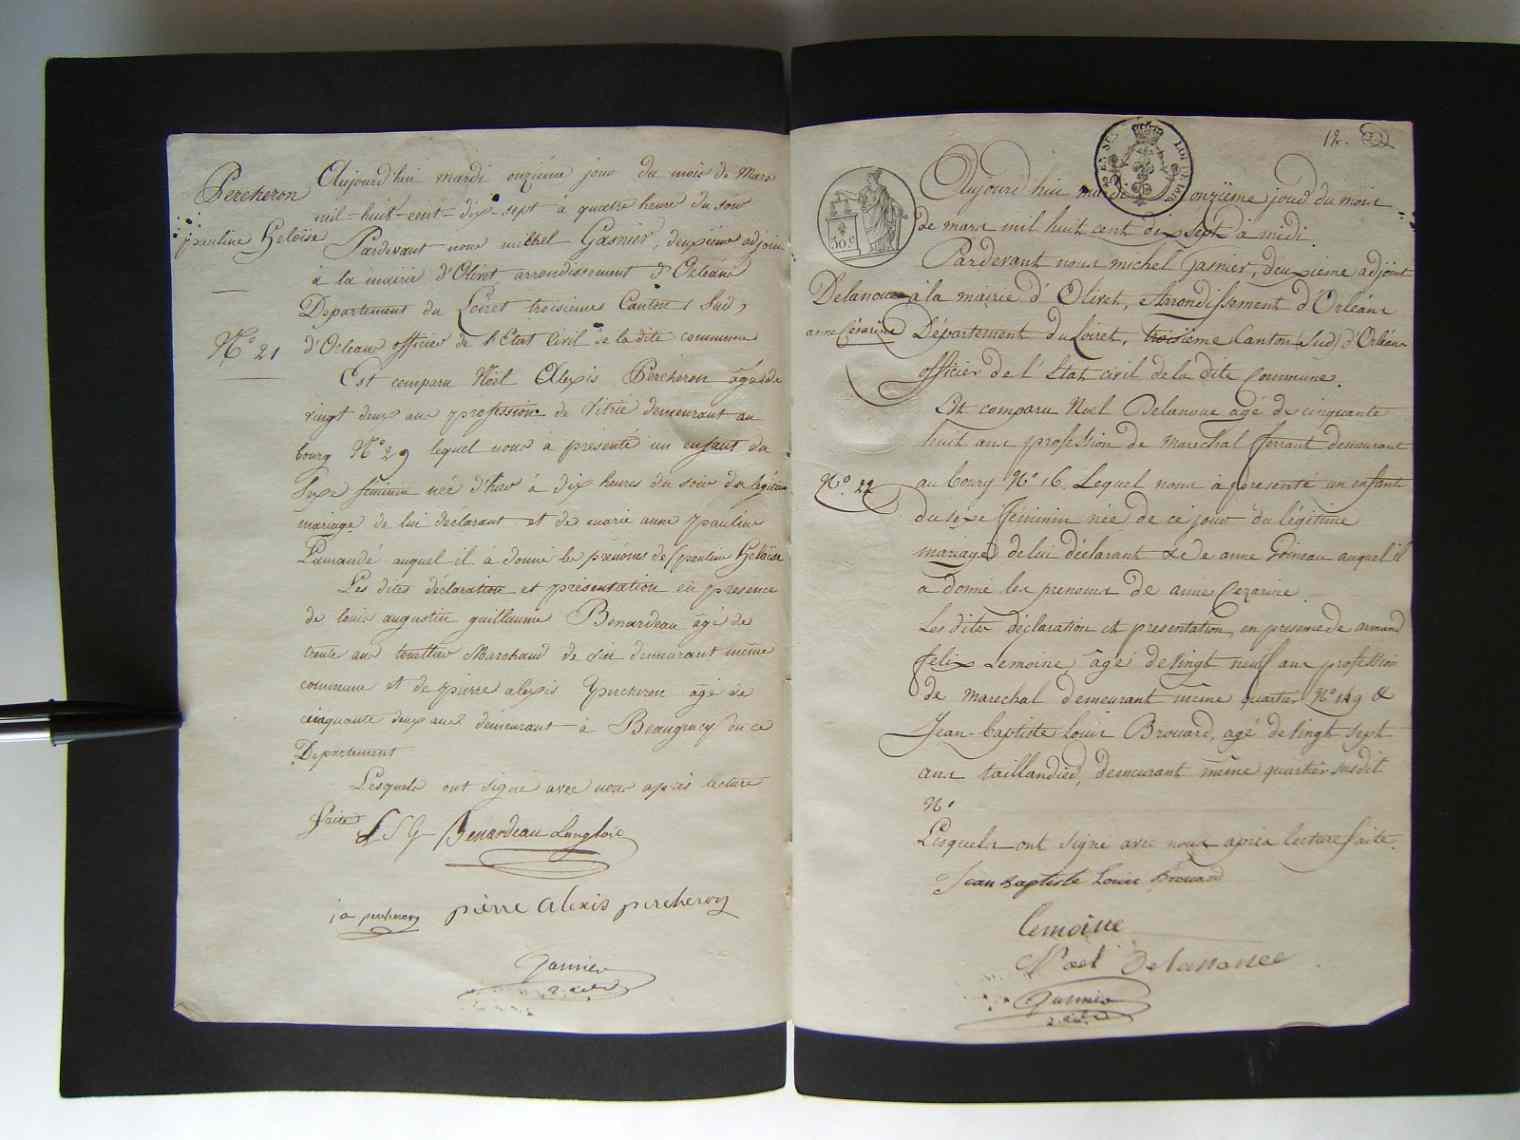 Percheron
pauline Heloïse
N.° 21
Aujourd'hui mardi onzième jour du mois de Mars
mil-huit-cent-dix-sept à quatre heure du soir
Pardevant nous michel Gasnier, deuxième adjoint
à la mairie d'Olivet arrondissement d'Orléans
Département du Loiret troisieme Canton (Sud)
d'Orleans officier de l'Etat Civil de la dite commune
Est comparu Noël Alexis Percheron âgé de
vingt deux ans profession de demeurant au
bourg N° 29 lequel nous à présenté un enfant du
Sexe féminin née d'hier à dix heures du soir du légitime
mariage de lui déclarant et de marie anne pauline
Lamandé auquel il à donné les prénoms de pauline Heloïse
Les dites déclaration et présentation en presence
de louis augustin guillaume Benardeau âgé de
trente ans Marchand de demeurant même
commune et de pierre alexis percheron âgé de
cinquante deux ans demeurant à Beaugency de ce
Departement
Lesquels ont signé avec nous après lecture
faite
L S G Benardeau Langlois
percheron pierre alexis percheron
Gasnier
12.
30 c
Delanoue
anne Cézarine
N.° 22
Aujourd'hui mardi onzième jour du mois
de mars mil huit cent dix sept à midi
Pardevant nous michel Gasnier, deuxieme adjoint
à la mairie d'Olivet, Arrondissement d'Orléans
Département du Loiret, troisieme Canton (Sud) d'Orléans
officier de l'Etat civil de la dite Commune.
Est comparu Noel Delanoue agé de cinquante
huit ans profession de marechal ferrant demeurant
au bourg N° 16. Lequel nous à présenté un enfant
du sexe féminin née de ce jour du légitime
mariage de lui déclarant & de anne Goineau auquel il
a donné les prenoms de anne Cezarine
Les dites déclaration et presentation en presence de armand
felix Lemoine âgé de vingt neuf ans profession
de marechal demeurant même quartier N° 149 &
Jean-baptiste Louis Brouard, agé de vingt sept
ans taillandier, demeurant même quartier susdit
N°
Lesquels ont signé avec nous après lecture faite.
Jean Baptiste Louis Brouard
lemoine
Noel Delanoue
Gasnier